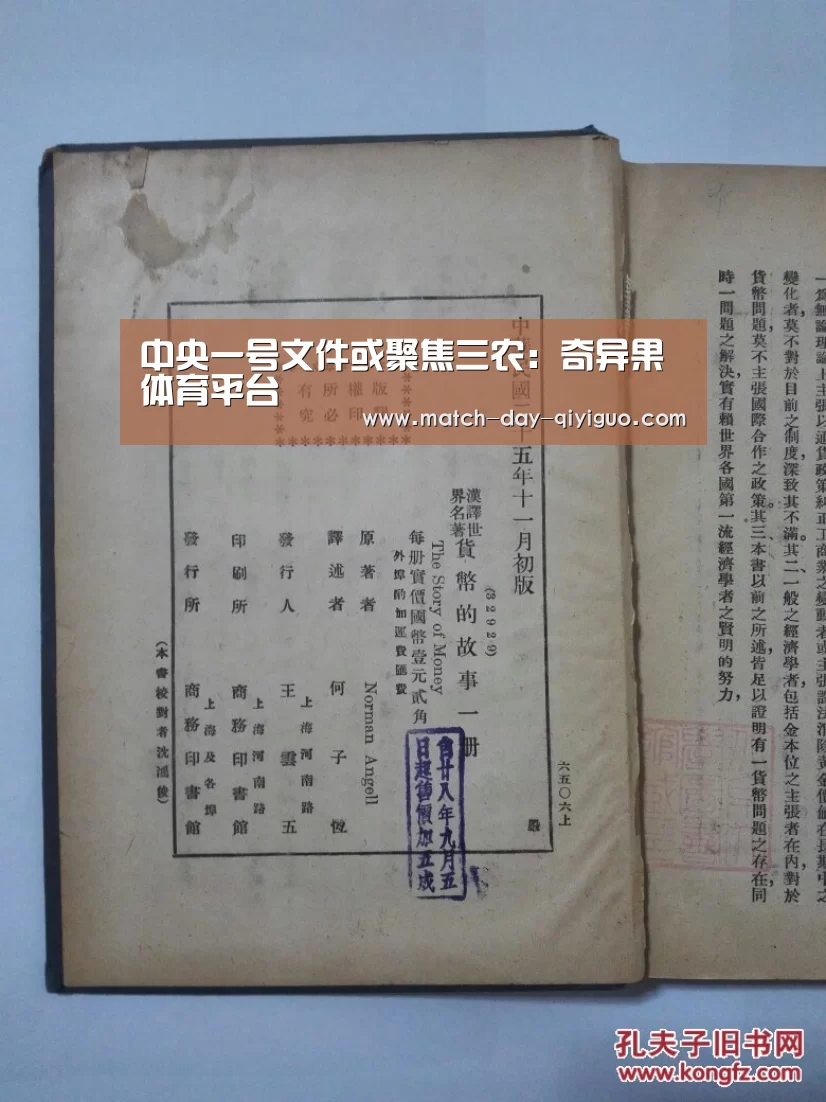 中央一号文件或聚焦三农：奇异果
体育平台
www.match-day-qiyiguo.com
一篇無論理論上主張以通貨政策糾正工商業之變動者或主張設法消除黃金價値在長期中之
變化者，莫不對於目前之制度深致其不滿。其二、一般之經濟學者包括金本位之主張者在內，對於
貨幣問題，莫不主張國際合作之政策。其三、本書以前之所述，皆足以證明有一貨幣問題之存在，同
時一問題之解決，實有賴世界各國第一流經濟學者之賢明的努力，
六五〇六上
五年十一月初版
版
權印
所必
有究
漢譯世
界名著
貨幣的故事一冊
(32929)
The Story of Money
每冊實價國幣壹元貳角
外埠酌加運費匯費
原著者 Norman Angell
譯述者 何子恆
發行人 王雲五
上海河南路
印刷所 商務印書館
上海河南路
發行所 商務印書館
上海及各埠
(本書校對者沈
自廿八年九月五
日起舊價加五成
孔夫子旧书网
www.kongfz.com